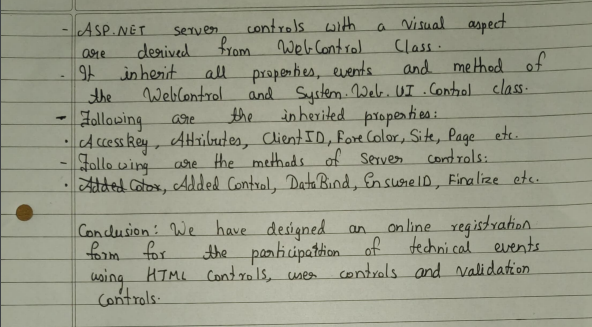 - ASP.NET server controls with a visual aspect
are derived from WebControl Class.
- It inherit all properties, events and method of
the WebControl and System.Web.UI.Control class.
- Following are the inherited properties:
• AccessKey, Attributes, ClientID, ForeColor, Site, Page etc.
- Following are the methods of Server controls:
• Added Color, Added Control, DataBind, EnsureID, Finalize etc.
Conclusion: We have designed an online registration
form for the participation of technical events
using HTML Controls, user controls and validation
Controls.